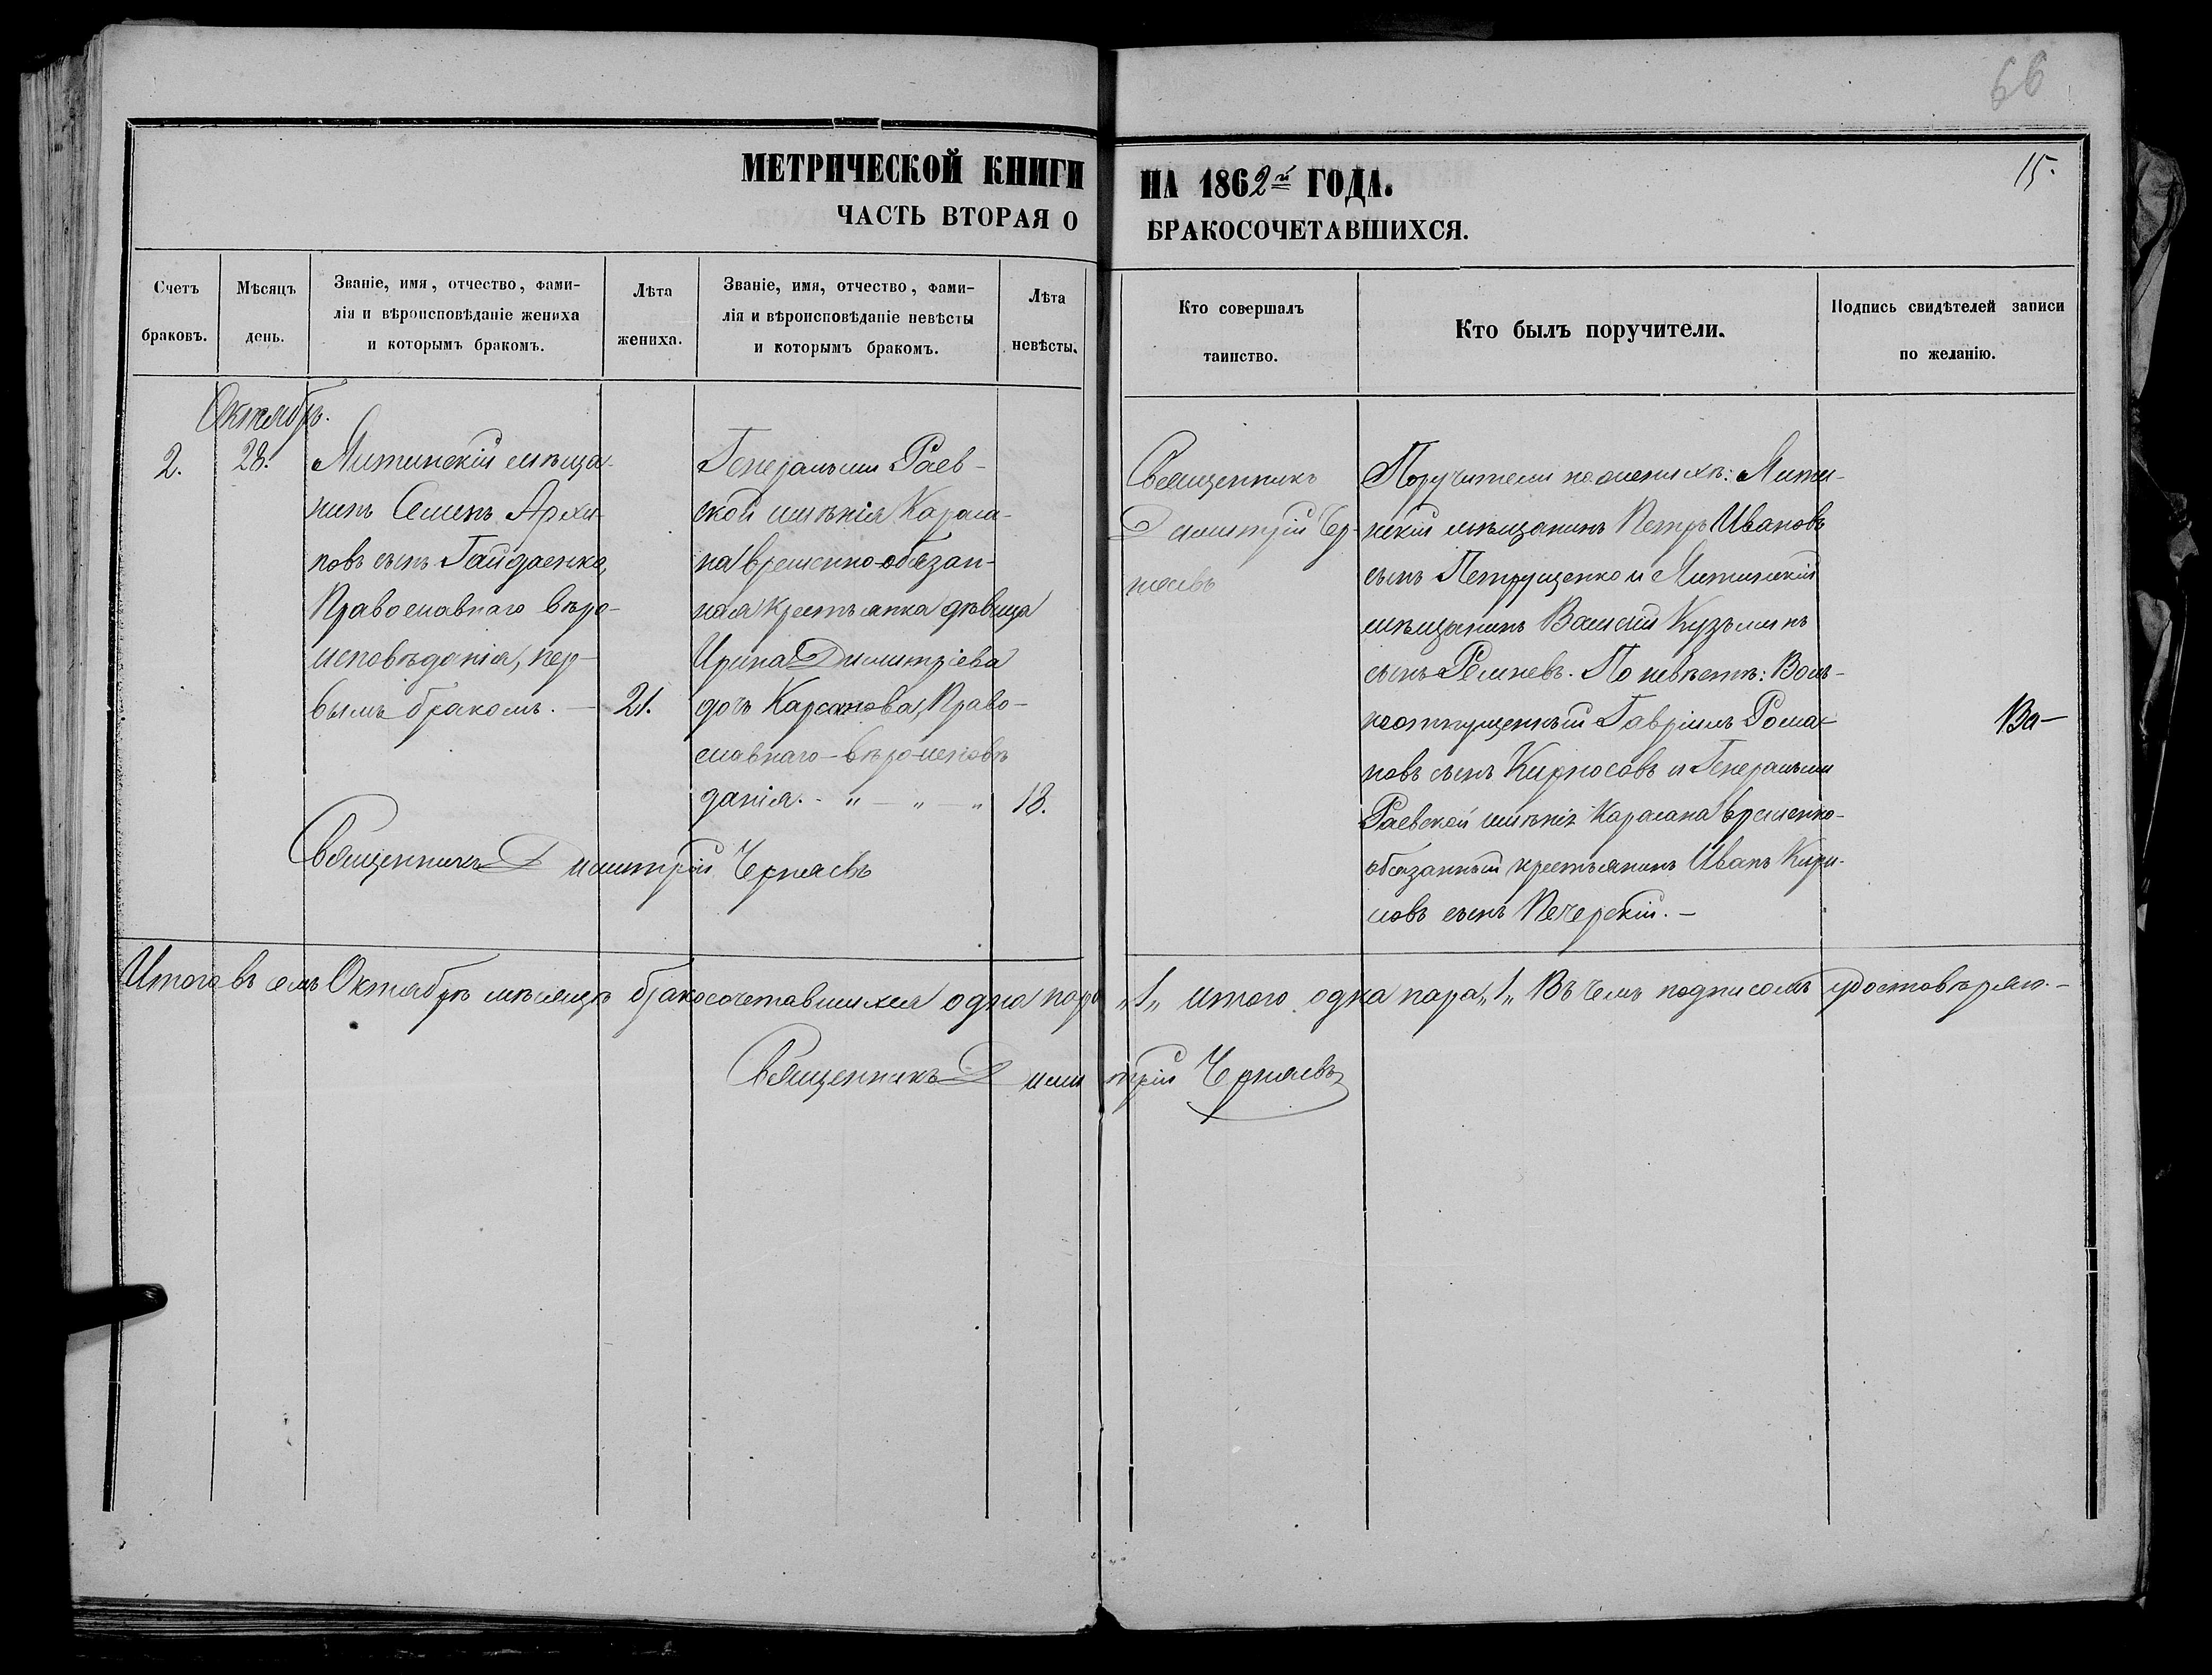 66
15.
МЕТРИЧЕСКОЙ КНИГИ НА 1862й ГОДА.
ЧАСТЬ ВТОРАЯ О БРАКОСОЧЕТАВШИХСЯ.
Счетъ браковъ.
Мѣсяцъ день.
Званіе, имя, отчество, фами-
лія и вѣроисповѣданіе жениха
и которымъ бракомъ.
Лѣта жениха.
Званіе, имя, отчество, фами-
лія и вѣроисповѣданіе невѣсты
и которымъ бракомъ.
Лѣта невѣсты.
Кто совершалъ
таинство.
Кто былъ поручители.
Подпись свидѣтелей записи
по желанію.
Октябрь.
2.
28.
Литинскій мѣща-
нинъ Семенъ Архи-
повъ сынъ Гайдаенко,
Православнаго вѣро-
исповѣданія, пер-
вымъ бракомъ. —
21.
Генеральши Раев-
ской имѣнія Караса-
на временно-обязан-
ная крестьянка дѣвица
Ирина Димитріева
дочь Карсанова, Право-
славнаго-вѣроисповѣ
данія. - " — " — "
18.
Священникъ Димитрій Черняевъ
Священникъ
Димитрій Чер-
няевъ
Поручители по женихѣ: Лити-
нскій мѣщанинъ Петръ Ивановъ
сынъ Петрущенко и Литинскій
мѣщанинъ Василій Кузьминъ
сынъ Ремневъ. По невѣстѣ: Воль-
ноотпущенный Гавріилъ Рома-
новъ сынъ Кирносовъ и Генеральши
Раевской имѣнія Карасана временно-
обязанный крестьянинъ Иванъ Кири-
ловъ сынъ Печерскій. —
Итого въ семъ Октябрѣ мѣсяцѣ бракосочетавшихся одна пара „1„ итого одна пара „1„ Въ чемъ подписомъ удостовѣряю. —
Священникъ Димитрій Черняевъ